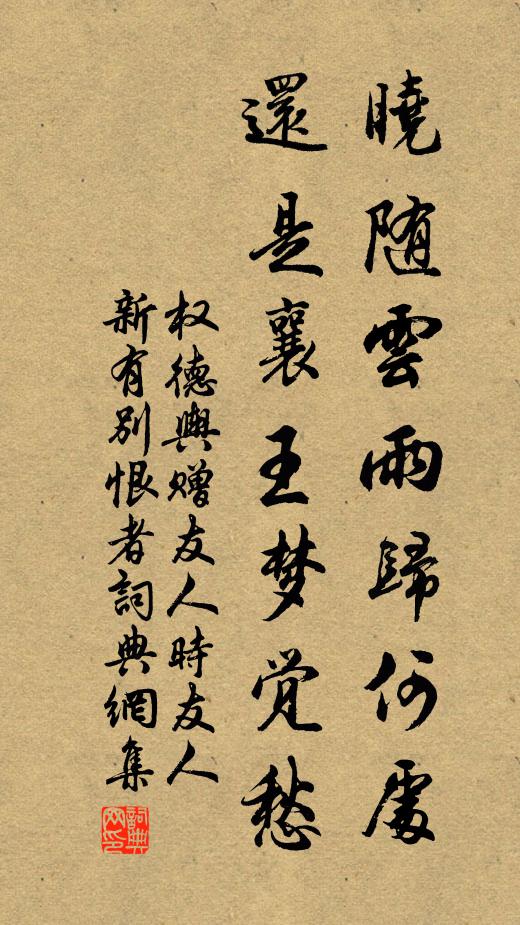 曉随雲雨歸何處
還是襄王梦觉愁
权德興赠友人時友人
新有别恨者詞典網集
詞典网印